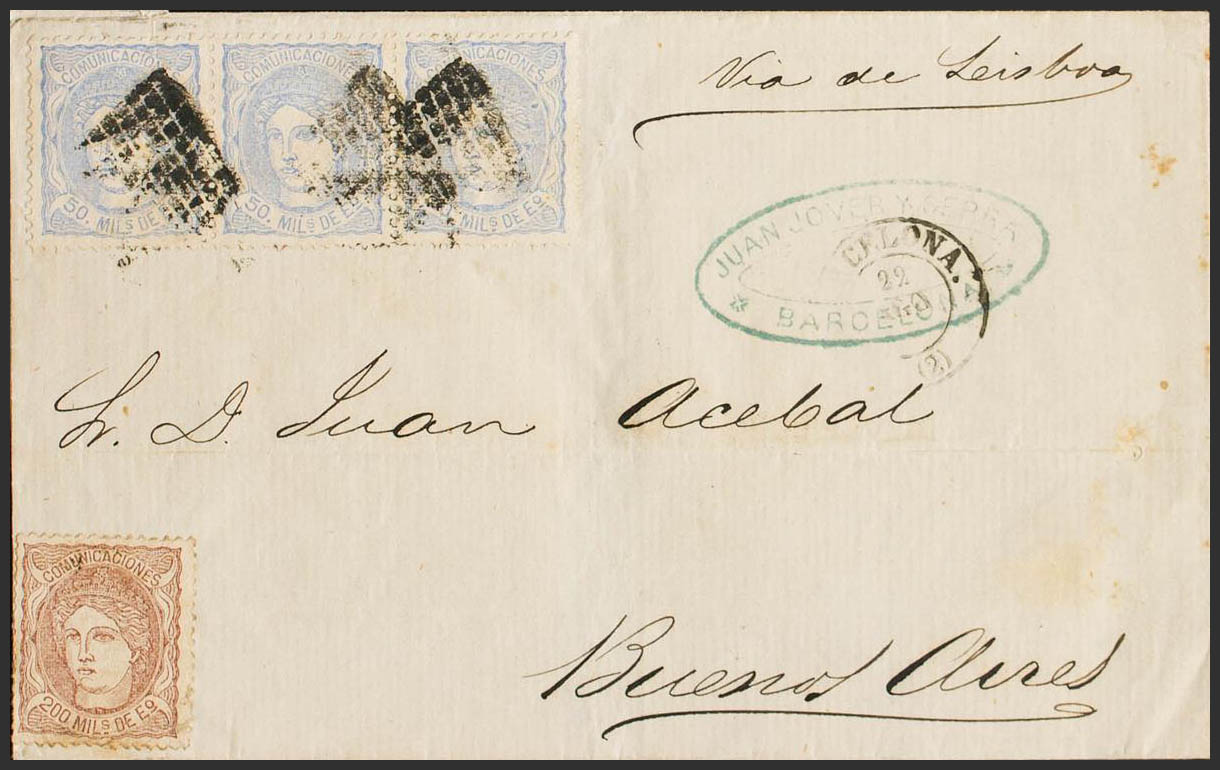 COMUNICACIONES
50. MILS DE
COMUNICACION
50. MILS DE E
COMUNICACIONES
MILS DE Eº
Via de Leisboa
JUAN JOVER Y SERRA
* BARCELONA
CELONA.
22
(2)
Sr. D. Juan Acebal
COMUNICACIONES
200 MILS DE Eº
Buenos Aires